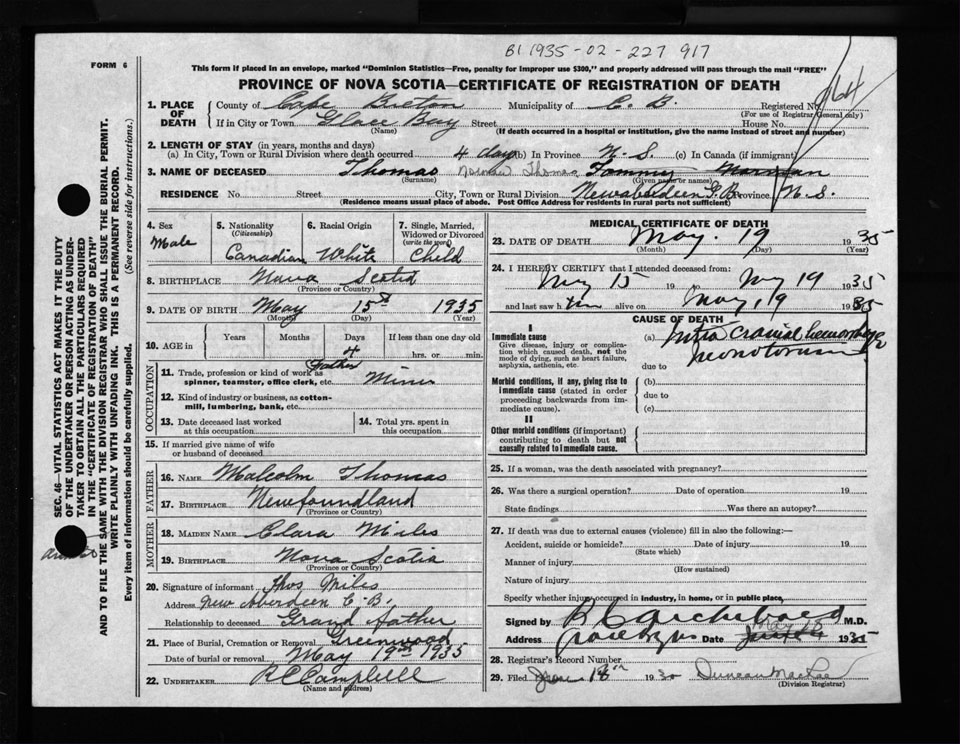 B1 1935-02-227 917
FORM 6
This form if placed in an envelope, marked "Dominion Statistics—Free, penalty for improper use $300," and properly addressed will pass through the mail "FREE"
PROVINCE OF NOVA SCOTIA—CERTIFICATE OF REGISTRATION OF DEATH
1. PLACE OF DEATH County of Cape Breton Municipality of C. B. Registered No. 164
(For use of Registrar General only)
If in City or Town Glace Bay Street House No.
(Name) (If death occurred in a hospital or institution, give the name instead of street and number)
2. LENGTH OF STAY (in years, months and days)
(a) In City, Town or Rural Division where death occurred 4 days (b) In Province N. S. (c) In Canada (if immigrant)
3. NAME OF DECEASED Thomas Norman Thomas Tommy Norman
(Surname) (Given name or names)
RESIDENCE No. Street City, Town or Rural Division New Aberdeen G. B. Province N. S.
(Residence means usual place of abode. Post Office Address for residents in rural parts not sufficient)
4. Sex 5. Nationality 6. Racial Origin 7. Single, Married, Widowed or Divorced
(Citizenship) (write the word)
Male Canadian White Child
8. BIRTHPLACE Nova Scotia
(Province or Country)
9. DATE OF BIRTH May 15th 1935
(Month) (Day) (Year)
10. AGE in Years Months Days If less than one day old
4 hrs. or min.
OCCUPATION
Father
11. Trade, profession or kind of work as spinner, teamster, office clerk, etc. Miner
12. Kind of industry or business, as cotton-mill, lumbering, bank, etc.
13. Date deceased last worked at this occupation 14. Total yrs. spent in this occupation
15. If married give name of wife or husband of deceased
FATHER
16. NAME Malcolm Thomas
17. BIRTHPLACE Newfoundland
(Province or Country)
MOTHER
18. MAIDEN NAME Clara Miles
19. BIRTHPLACE Nova Scotia
(Province or Country)
20. Signature of informant Thos Miles
Address New Aberdeen C. B.
Relationship to deceased Grand father
21. Place of Burial, Cremation or Removal Greenwood
Date of burial or removal May 19th 1935
22. UNDERTAKER R C Campbell
(Name and address)
MEDICAL CERTIFICATE OF DEATH
23. DATE OF DEATH May 19 1935
(Month) (Day) (Year)
24. I HEREBY CERTIFY that I attended deceased from:
May 15 19 to May 19 1935
and last saw him alive on May 19 1935
CAUSE OF DEATH
I
Immediate cause (a) Intra cranial hemorrhage
Give disease, injury or complication which caused death, not the mode of dying, such as heart failure, asphyxia, asthenia, etc.
neonatorum
due to
Morbid conditions, if any, giving rise to immediate cause (stated in order proceeding backwards from immediate cause). (b)
due to
(c)
II
Other morbid conditions (if important) contributing to death but not causally related to immediate cause.
25. If a woman, was the death associated with pregnancy?
26. Was there a surgical operation? Date of operation 19
State findings Was there an autopsy?
27. If death was due to external causes (violence) fill in also the following:—
Accident, suicide or homicide? Date of injury 19
(State which)
Manner of injury
(How sustained)
Nature of injury
Specify whether injury occurred in industry, in home, or in public place,
Signed by M.D.
Address Date May 18 1935
28. Registrar's Record Number
29. Filed June 18th 1935 Duncan MacRae
(Division Registrar)
SEC. 46—VITAL STATISTICS ACT MAKES IT THE DUTY
OF THE UNDERTAKER OR PERSON ACTING AS UNDERTAKER
TO OBTAIN ALL THE PARTICULARS REQUIRED
IN THE "CERTIFICATE OF REGISTRATION OF DEATH"
AND TO FILE THE SAME WITH THE DIVISION REGISTRAR WHO SHALL ISSUE THE BURIAL PERMIT.
WRITE PLAINLY WITH UNFADING INK. THIS IS A PERMANENT RECORD.
Every item of information should be carefully supplied. (See reverse side for instructions.)